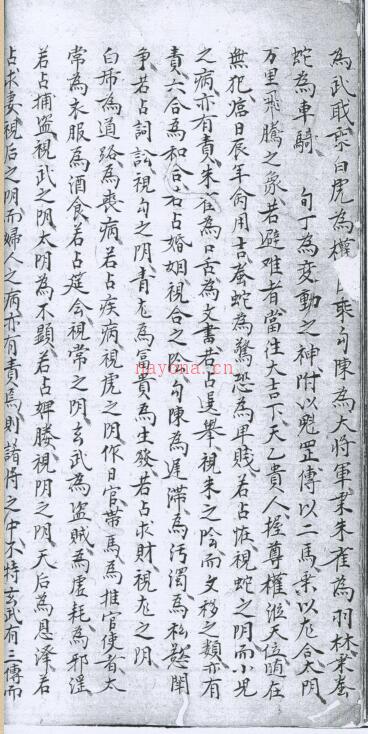 為武職乘白虎為權乘勾陳為大將軍乘朱雀為羽林乘螣
蛇為車騎　旬丁為变動之神附以魁罡傳以二馬乘以龙合太阴
万里飛騰之象若避难者當往大吉下天乙貴人握尊權涖天位随在
無犯日辰年命用吉螣蛇為驚恐為卑賤若占怪視蛇之阴而小兒
之病亦有責朱雀為口舌為文書若占選舉視朱之陰而文移之類亦有
責六合為和合若占婚姻視合之陰勾陳為遲滞為污濁為私慾閗
争若占詞訟視勾之阴青龙為富貴為生發若占求財視龙之阴
白乕為道路為喪病若占疾病視虎之阴作日官帶馬為推官使者太
常為衣服為酒食若占筵会視常之阴玄武為盗賊為虚耗為邪淫
若占捕盗視武之阴太阴為不顯若占婢媵視阴之阴天后為恩泽若
占求妻視后之阴而婦人之病亦有責焉則諸将之中不特玄武有三傳而
nayona.cn